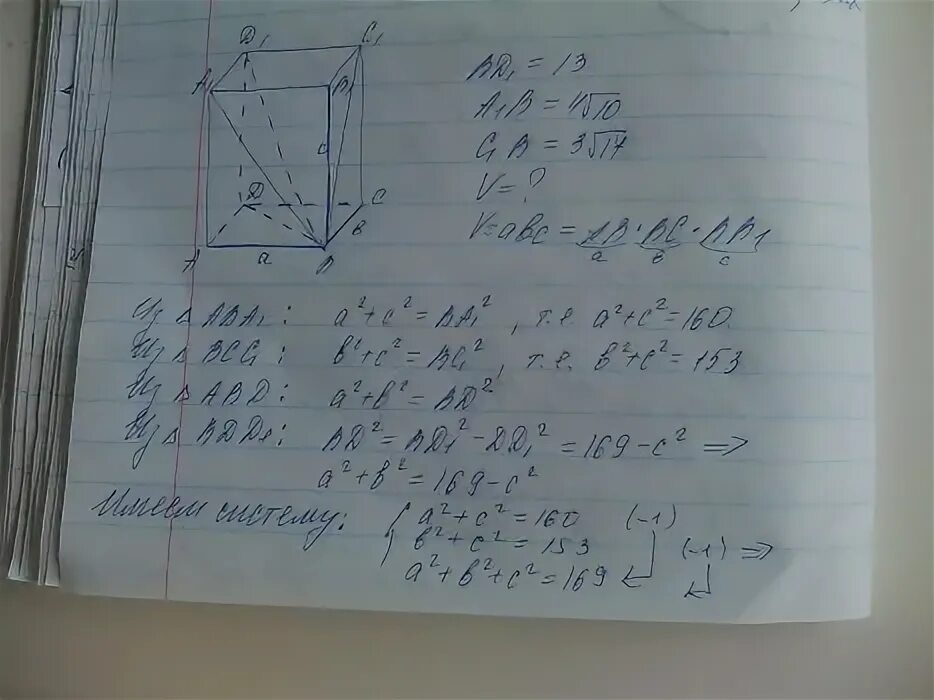 D₁ C₁
A₁ B₁
c
D C
в
A a B
BD₁ = 13
A₁B = 4√10
C₁B = 3√17
V = ?
V = aвc = AB · BC · BB₁
a в c
Из △ ABA₁: a² + c² = BA₁², т.е. a² + c² = 160.
Из △ BCC₁: в² + c² = BC₁², т.е. в² + c² = 153
Из △ ABD: a² + в² = BD²
Из △ BDD₁: BD² = BD₁² - DD₁² = 169 - c² =>
a² + в² = 169 - c²
Имеем систему: { a² + c² = 160 (-1)
в² + c² = 153 (-1) =>
a² + в² + c² = 169